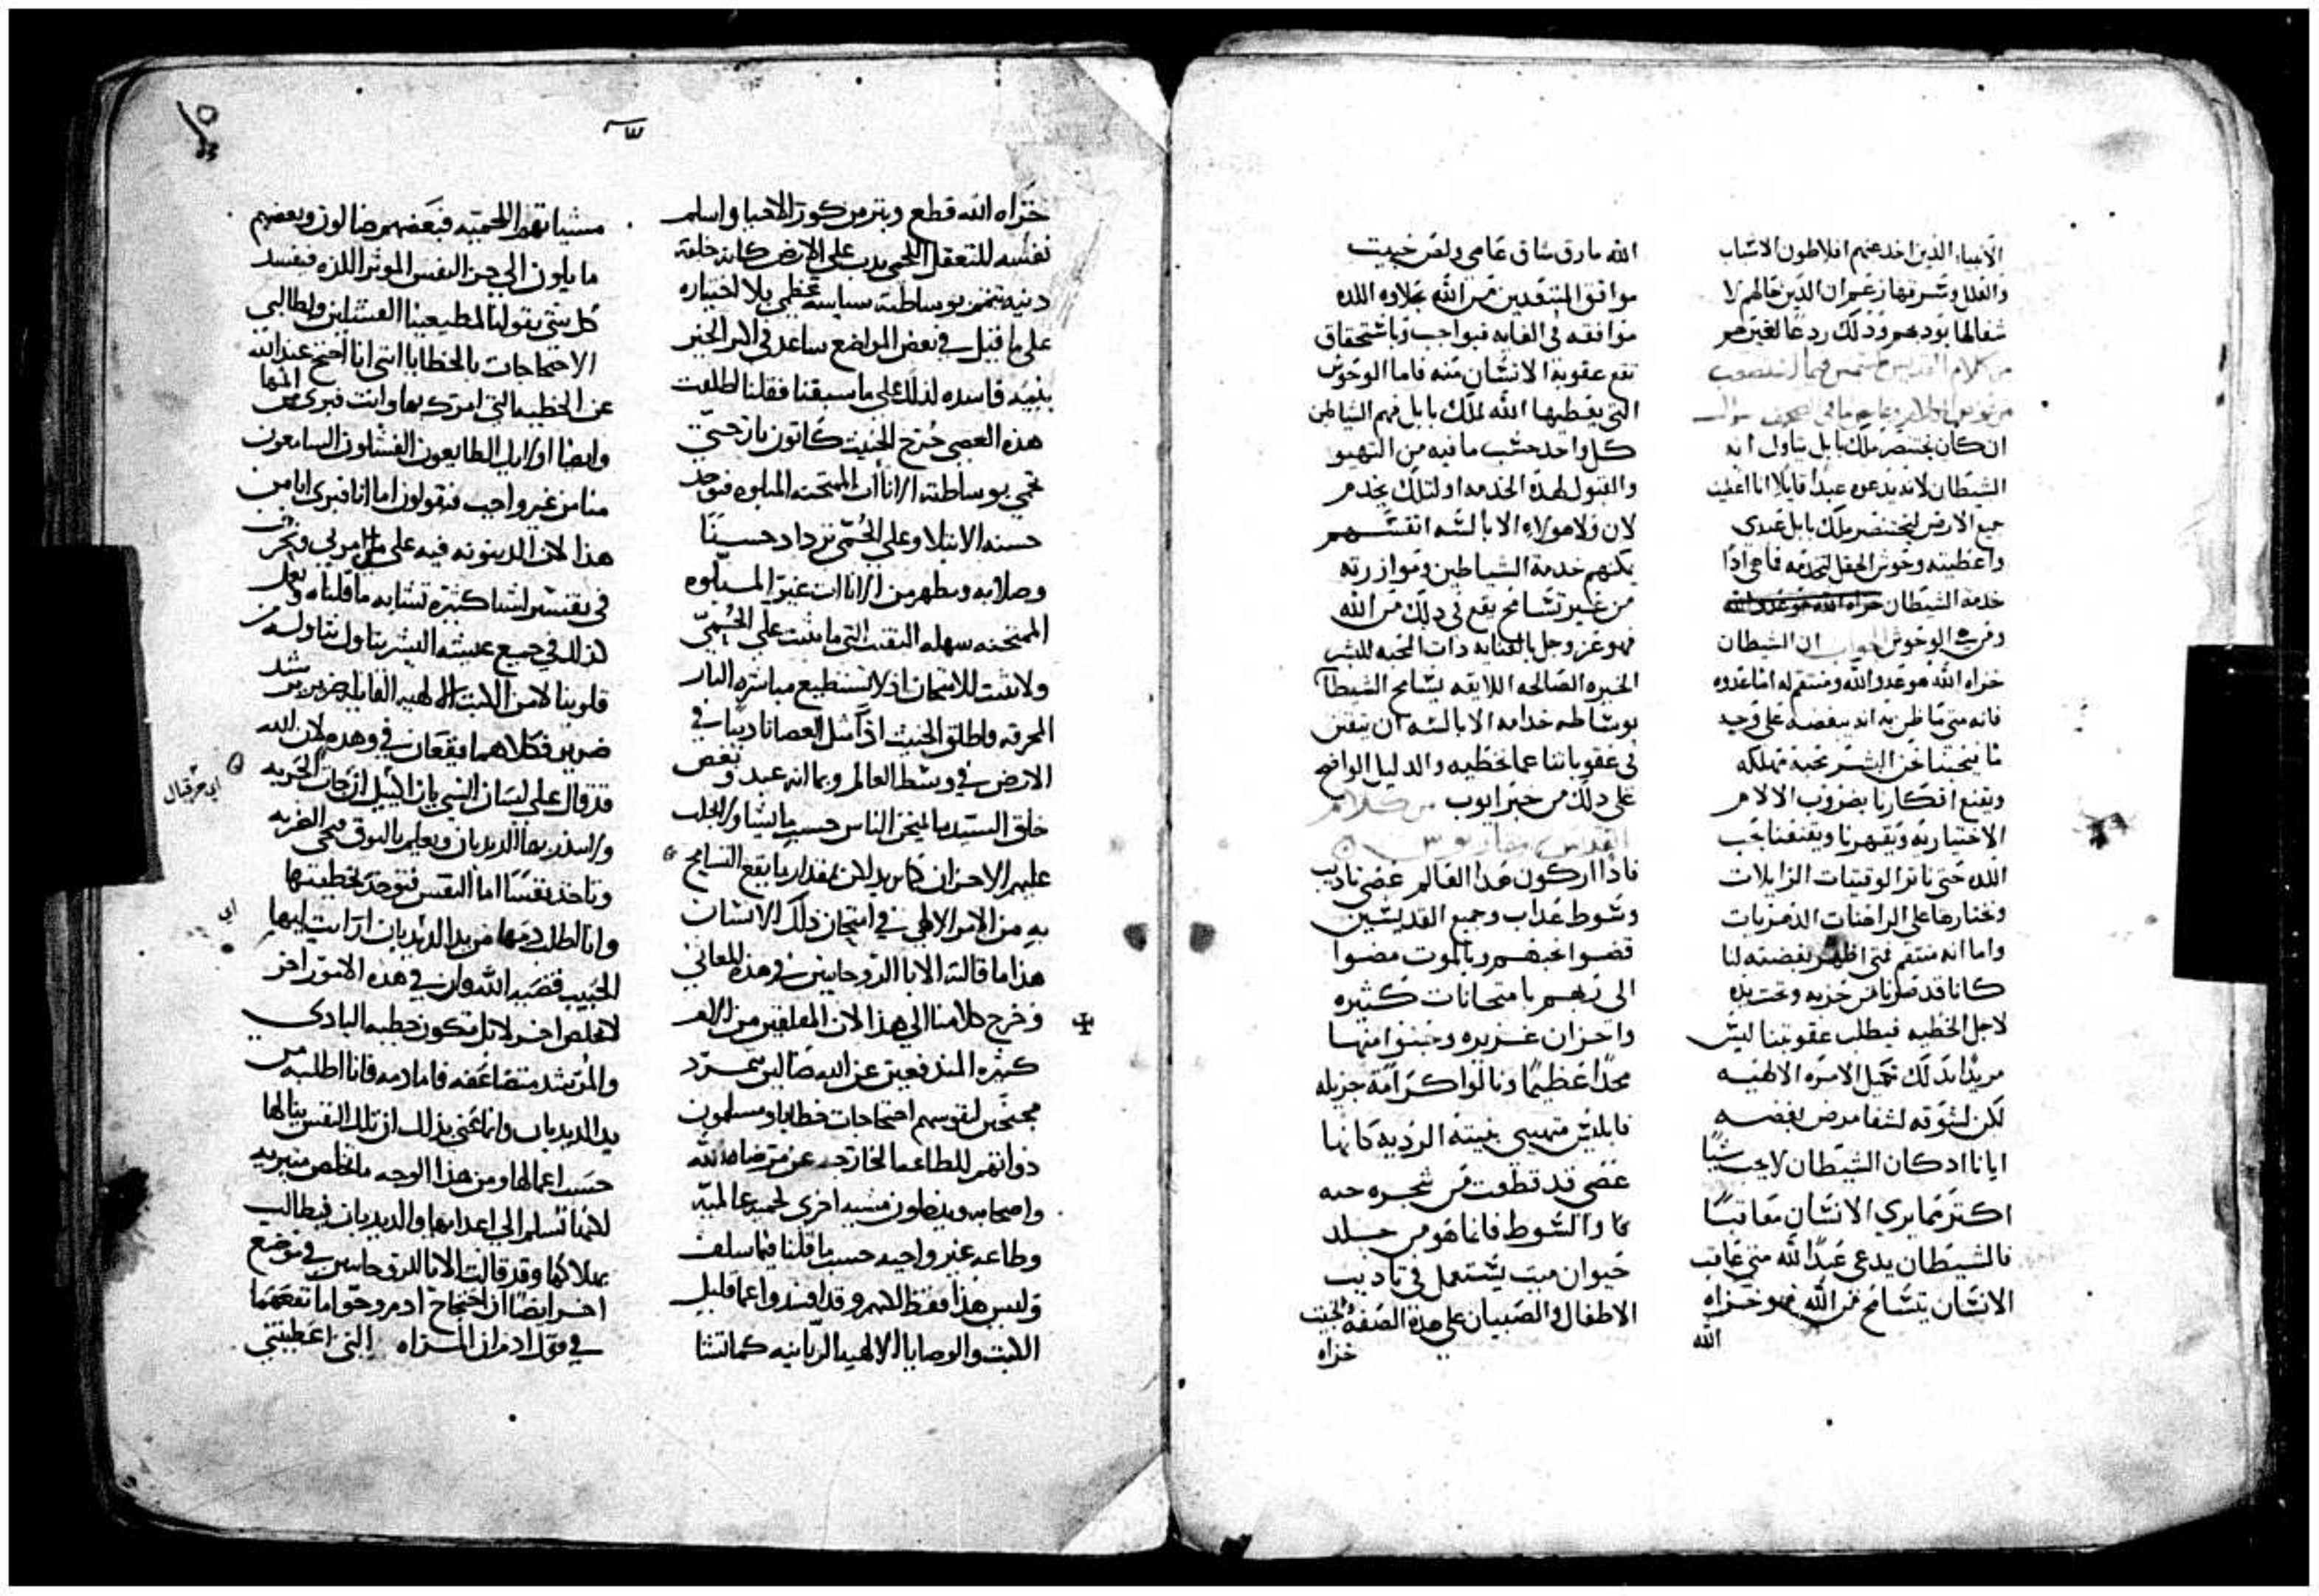 الانبياء الذين اخد عنهم افلاطون الاشباب
والعلل وشرتها زعم ان الذين حالهم لا
شفالها بودهم ودلك ردعا لغيرهم
من كلام القديس
ان كان بختنصر ملك بابل يناول انه
الشيطان لانه يدعوه عبدا قايلا انا اعطيت
جميع الارض لبختنصر ملك بابل عبدي
واعطيته وحوش الحقل لتخدمه فاهي اذا
خدمة الشيطان خزاه الله هو عدو الله
ومن هي الوحوش الجواب ان الشيطان
خزاه الله هو عدو الله ومنتقم له اما عدوه
فانه متى ما ظن به انه يبغضه على وجيد
ما ينجينا نحن البشر نحبة مهلكه
ويقنع افكارنا بضروب الالام
الاختياريه ويقهرنا ويقنعنا بحب
اللده حتى ناثر الوقتيات الزايلات
ونختارها على الراهنات الدهريات
واما انه منتقم فمتى اظهر بغضته لنا
كانا قد صرنا من حزبه وتحت يده
لاجل الخطيه فيطلب عقوبتنا ليس
مريدا بدلك تكميل الامره الالهيه
لكن لشوقه لشفا مرض بغضه
ايانا ادكان الشيطان لا يحب شيا
اكتر مما يري الانسان معاقبا
فالشيطان يدعى عبدا لله متى عاقب
الانسان بتسامح من الله فهو خزاه
الله
الله مارق شاق عاصي ولعن خبيت
موافق المتنقدين من الله بحلاوه اللده
موافقه في الغايه فبواجب وباشتحقاق
تقع عقوبة الانسان منه فاما الوحوش
التي يعطيها الله لملك بابل فهم الشياطين
كل واحد حسب ما فيه من التهيو
والقبول لهده الخدمه اولتلك يخدم
لان ولا هولاء الابالسه انفسهم
يكنهم خدمة الشياطين وموازرته
من غير تسامح يقع في دلك من الله
فهو عز وجل بالعنايه دات المحبه للبشر
الخيره الصالحه اللايقه يسامح الشيطان
بوساطه خدامه الابالسه ان يتفنن
في عقوباتنا عما نخطيه والدليل الواضح
على دلك من خبر ايوب من كلام
القديس
فاذا اركون هدا العالم عصى تاديب
وسوط عداب وجميع القديسين
قضوا نحبهم وبالموت مضوا
الى ربهم بامتحانات كثيره
واحزان غزيره وجنوا منها
مجدا عظيما ونالوا كرامة جزيله
فابليس فهي بنيته الرديه كانها
عصى قد قطعت من شجره حيه
كما والسوط فانما هو من جلد
حيوان ميت يستعمل في تاديب
الاطفال والصبيان على هده الصفه الخبيت
خزاه
خزاه الله قطع وبتر من كورة الاحيا واسلم
نفسه للتعقل اللحمي يدب على الارض كانه خلقة
دنيه تختم بوساطته سياسة عظمي بلا اختياره
على ما قيل في بعض المواضع ساعد في البر الخير
بنيه فاسده لذلك على ما سبقنا فقلنا اطلقت
هذه العصى خرج الخبيت كاتون نار حتى
تحمي بوساطته الاناات الممتحنه المبلوه فتوجد
حسنه الابتلا وعلى الحمي تزداد حسنا
وصلابه ويظهر من الاناات غير المبلوه
الممتحنه سهله التفتت التي ما تثبت على الحمي
ولا تثبت للامتحان اذ لا تستطيع مباشرة النار
المحرقه فاطلق الخبيت اذا مثل العصا تاديبا في
الارض في وسط العالم وبما انه عبد وبغض
خلق السيد ما يمتحن الناس حسب ما يشا ولا يجلب
عليهم الاحزان كما يريد لكن بمقدار ما يقع التسامح
به من الامر الالهي في امتحان ذلك الانسان
هذا ما قالته الابا الروحانيين في هذه المعاني
وخرج كلامنا الي هذا الان المقلقين من الالام
كثيره المندفعين عن الله ضالين بتمرد
محتجين لنفوسهم احتجاجات خطايا ويسلمون
ذواتهم للطاعه الخارجه عن مرضاة الله
واصحابه ويبطلون مشيه اخرى لحميه عالميه
وطاعه غير واجبه حسب ما قلنا فيما سلف
وليس هذا فقط لانهم وقد افسدوا عما قليل
الكتب والوصايا الالهيه الربانيه كما تشا
مشياتهم اللحميه فبعضهم ضالون وبعضهم
مايلون الي حزن النفس الموثر اللذه فيفسد
كل شي بقولنا لمطيعينا الفشلين ولطالبي
الاحتجاجات بالخطايا انني انا احتج عند الله
عن الخطيه التي امرتك بها وانت فبرى من المها
وايضا اولايك الطايعون الفشلون السامعون
منا من غير واجب فيقولون اما انا فبرى انا من
هذا لان الدينونه فيه على من امرني ونجرب
في تفتيش اشيا كثيره تشابه ما قلناه ونعل
كذلك في جميع عيشة البشر يتاول نتاوله من
قلوبنا لا من الكتب الالهيه القايله ضرير يرشد
ضرير فكلاهما يقعان في وهده لان الله
قد قال على لسان النبي بان اليل ان جات الحربه
ولا ينذر بها الديدبان ويعلم بالبوق فتجي الحربه
وتاخذ نفسا اما النفس فتوخد بخطيتها
وانا اطلب دمها من يد الديدبان ارايت ايها
الحبيب قضيه الله وان في هذه الامور اخر
لا يخلص اخر لا بل تكون خطية البادي
والمرشد متضاعفه فاما دمه فانا اطلبه من
يد الديدبان وانما عني بذلك ان تلك النفس ينالها
حسب اعمالها ومن هذا الوجه ما تخلص متبريه
لانها تسلم الي اعدايها والديدبان فيطالب
بهلاكها وقد قالت الابا الروحانيين في موضع
اخر ايضا ان احتجاج ادم وحوا ما نفعهما
في قول ادم ان المراه التي اعطيتني
اي حزقيال
اي